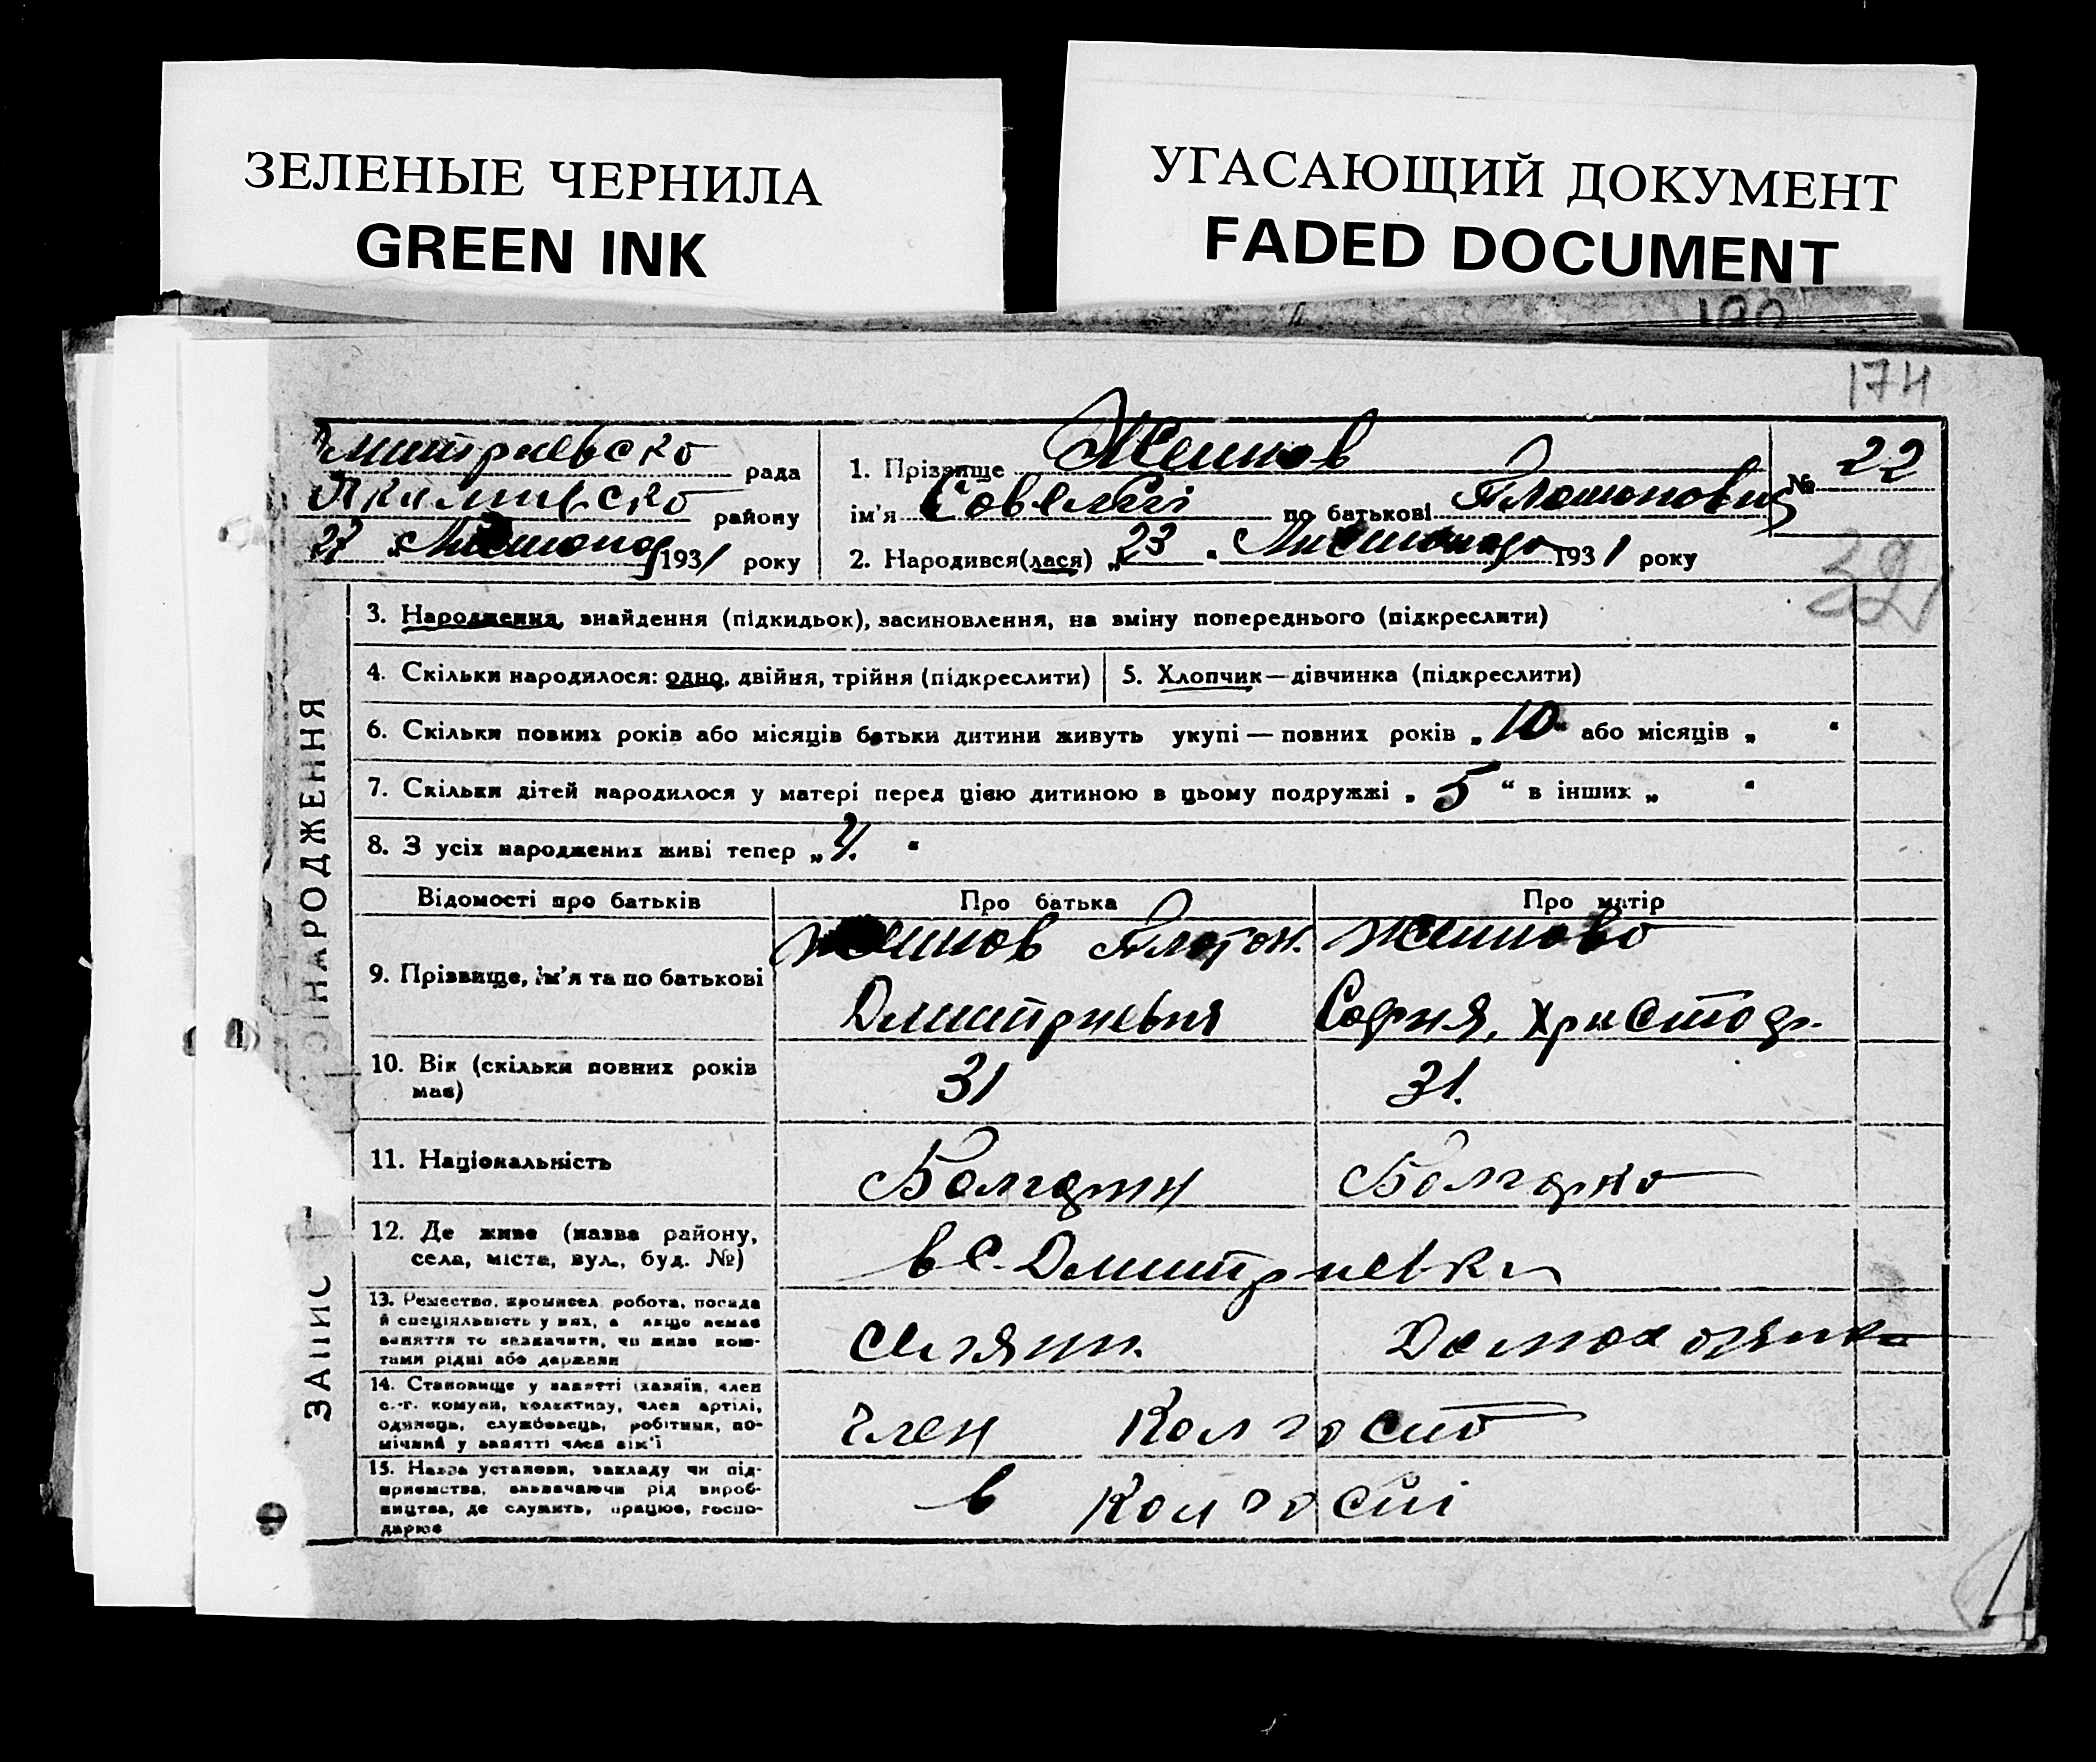 ЗЕЛЕНЫЕ ЧЕРНИЛА
GREEN INK
УГАСАЮЩИЙ ДОКУМЕНТ
FADED DOCUMENT
174
Дмитриевско рада
Якимивско району
27 Листопад 1931 року
1. Прізвище Жеинов
ім'я Савелій по батькові Платонович
№ 22
2. Народився(лася) „23 " Листопадо 1931 року
39
ЗАПИС НАРОДЖЕННЯ
3. Народження, знайдення (підкидьок), засиновлення, на вміну попереднього (підкреслити)
4. Скільки народилося: одно, двійня, трійня (підкреслити)
5. Хлопчик—дівчинка (підкреслити)
6. Скільки повних років або місяців батьки дитини живуть укупі — повних років „10" або місяців „ "
7. Скільки дітей народилося у матері перед цією дитиною в цьому подружжі „ 5 " в інших „ "
8. З усіх народжених живі тепер „4. "
Відомості про батьків
Про батька
Про матір
9. Прізвище, ім'я та по батькові
Жеинов Платон.
Дмитриевия
Жеиново
София, Христоф.
10. Вік (скільки повних років
має)
31
31.
11. Національність
Болгарин
Болгарко
12. Де живе (назва району,
села, міста, вул., буд. №)
в с. Дмитриевки
13. Ремество, промисел, робота, посада
й спеціяльність у них, а якщо немає
заняття то зазначити, чи живе кош-
тами рідні або держави
селянин.
Домохозяйка
14. Становище у занятті (хазяїн, член
с.-г. комуни, колективу, член артілі,
одинець, службовець, робітник, по-
мічний у занятті член сім'ї
член Колгоспо
15. Назва установи, закладу чи під-
приємства, зазначаючи рід вироб-
ництва, де служить, працює, госпо-
дарює
в Колгоспі